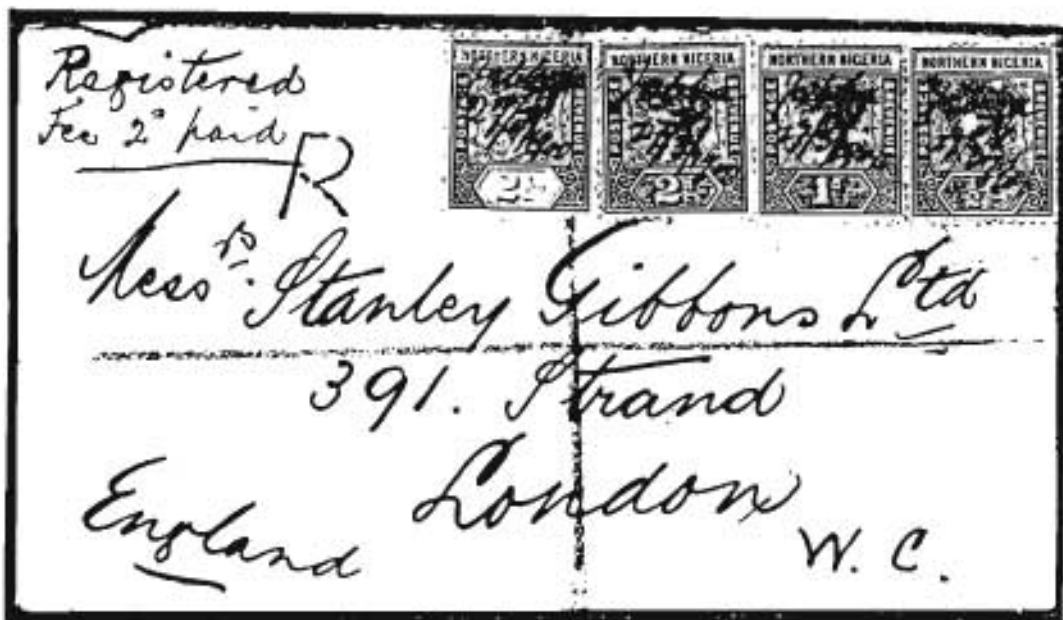 Registered
Fee 2d paid
R
NORTHERN NIGERIA NORTHERN NIGERIA NORTHERN NIGERIA NORTHERN NIGERIA
2½d 2½d 1d
Messrs. Stanley Gibbons Ltd
391. Strand
London
W. C.
England